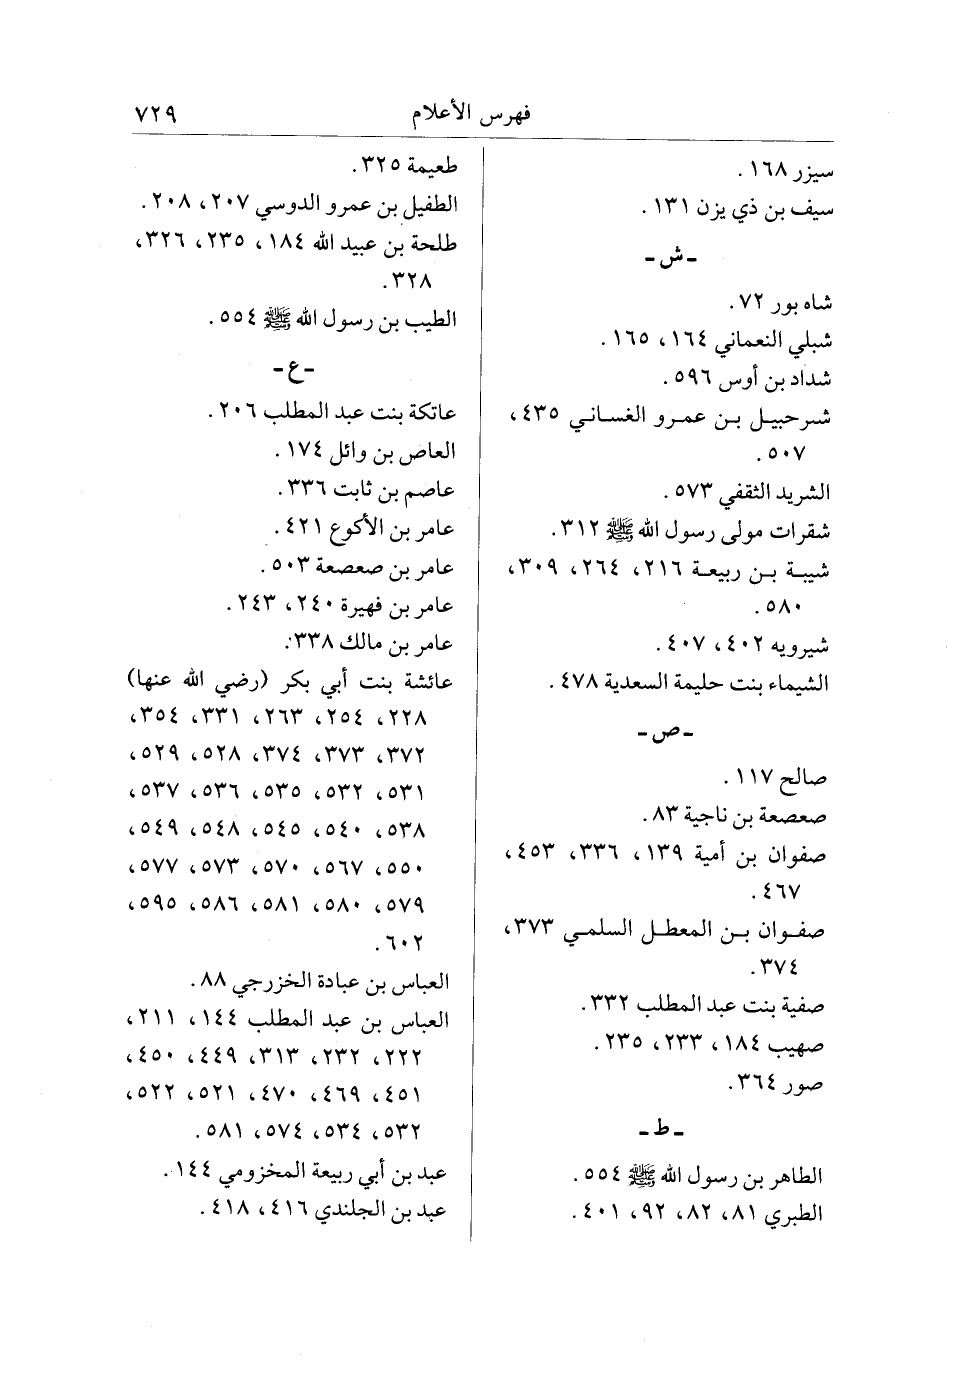 فهرس الأعلام ٧٢٩
سيزر ١٦٨.
سيف بن ذي يزن ١٣١.
- ش -
شاه بور ٧٢.
شبلي النعماني ١٦٤، ١٦٥.
شداد بن أوس ٥٩٦.
شرحبيل بن عمرو الغساني ٤٣٥،
٥٠٧.
الشريد الثقفي ٥٧٣.
شقرات مولى رسول الله ﷺ ٣١٢.
شيبة بن ربيعة ٢١٦، ٢٦٤، ٣٠٩،
٥٨٠.
شيرويه ٤٠٢، ٤٠٧.
الشيماء بنت حليمة السعدية ٤٧٨.
- ص -
صالح ١١٧.
صعصعة بن ناجية ٨٣.
صفوان بن أمية ١٣٩، ٣٣٦، ٤٥٣،
٤٦٧.
صفوان بن المعطل السلمي ٣٧٣،
٣٧٤.
صفية بنت عبد المطلب ٣٣٢.
صهيب ١٨٤، ٢٣٣، ٢٣٥.
صور ٣٦٤.
- ط -
الطاهر بن رسول الله ﷺ ٥٥٤.
الطبري ٨١، ٨٢، ٩٢، ٤٠١.
طعيمة ٣٢٥.
الطفيل بن عمرو الدوسي ٢٠٧، ٢٠٨.
طلحة بن عبيد الله ١٨٤، ٢٣٥، ٣٢٦،
٣٢٨.
الطيب بن رسول الله ﷺ ٥٥٤.
- ع -
عاتكة بنت عبد المطلب ٢٠٦.
العاص بن وائل ١٧٤.
عاصم بن ثابت ٣٣٦.
عامر بن الأكوع ٤٢١.
عامر بن صعصعة ٥٠٣.
عامر بن فهيرة ٢٤٠، ٢٤٣.
عامر بن مالك ٣٣٨.
عائشة بنت أبي بكر (رضي الله عنها)
٢٢٨، ٢٥٤، ٢٦٣، ٣٣١، ٣٥٤،
٣٧٢، ٣٧٣، ٣٧٤، ٥٢٨، ٥٢٩،
٥٣١، ٥٣٢، ٥٣٥، ٥٣٦، ٥٣٧،
٥٣٨، ٥٤٠، ٥٤٥، ٥٤٨، ٥٤٩،
٥٥٠، ٥٦٧، ٥٧٠، ٥٧٣، ٥٧٧،
٥٧٩، ٥٨٠، ٥٨١، ٥٨٦، ٥٩٥،
٦٠٢.
العباس بن عبادة الخزرجي ٨٨.
العباس بن عبد المطلب ١٤٤، ٢١١،
٢٢٢، ٢٣٢، ٣١٣، ٤٤٩، ٤٥٠،
٤٥١، ٤٦٩، ٤٧٠، ٥٢١، ٥٢٢،
٥٣٢، ٥٣٤، ٥٧٤، ٥٨١.
عبد بن أبي ربيعة المخزومي ١٤٤.
عبد بن الجلندي ٤١٦، ٤١٨.